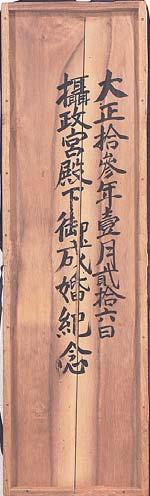 大正拾參年壹月貳拾六日
攝政宮殿下御成婚紀念